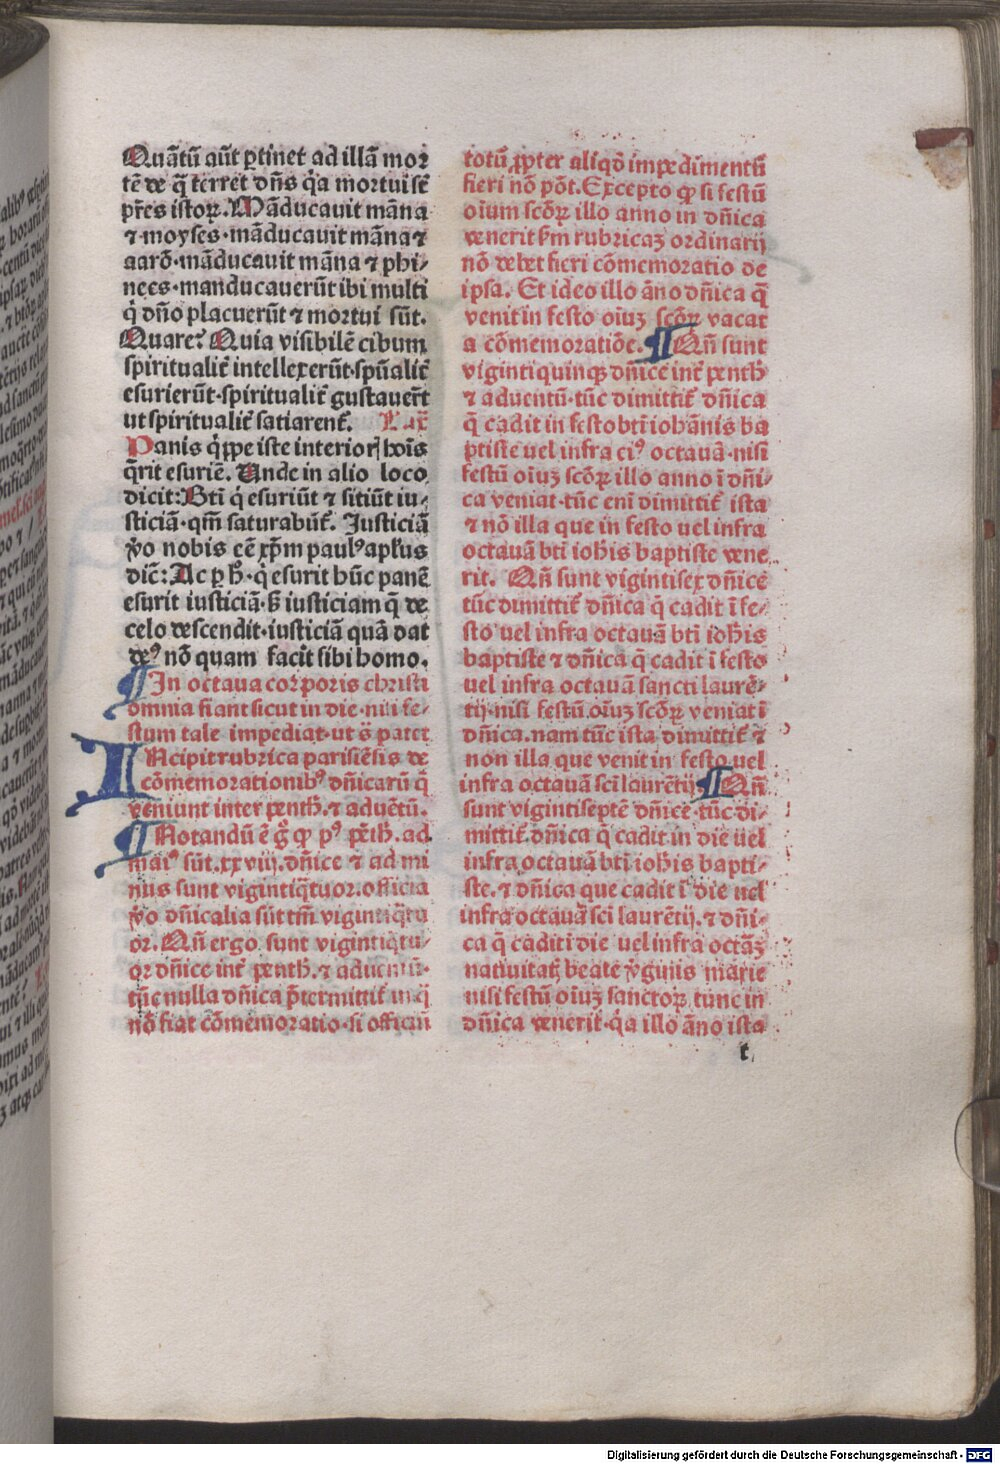 Quātū aūt ꝑtinet ad illā mor
tē de q̄ terret dn̄s q̇a mortui sūt
pr̄es istoꝝ. Māducauit māna
⁊ moyses·māducauit māna ⁊
aarō·māducauit māna ⁊ phi/
nees·manducauerūt ibi multi
q̇ dn̄o placuerūt ⁊ mortui sūt.
Quare? Quia visibilē cibum
spiritualit̄ intellexerūt·spūalit̄
esurierūt·spiritualit̄ gustauer̄t
ut spiritualit̄ satiarent̄.
Panis q̇ppe iste interior hoīs
q̄rit esuriē. Unde in alio loco
dicit: Bt̄i q̇ esuriūt ⁊ sitiūt iu/
sticiā·qm̄ saturabūt̄. Iusticiā
v̊o nobis eē xp̄m paulꝰ apl̄us
dic̄: Ac ꝑ h̄·q̇ esurit hūc panē
esurit iusticiā·ß iusticiam q̄ de
celo descendit·iusticiā quā dat
deꝰ nō quam facit sibi homo.
¶ In octaua corporis christi
omnia fiant sicut in die·nisi fe/
stum tale impediat·ut s̄ patet
INcipit rubrica parisiēsis de
cōmemorationibꝰ dn̄icarū q̄
veniunt inter penth̄.⁊ aduētū.
¶ Notandū ē g̊ ꝙ pꝰ pēth̄. ad
maiꝰ sūt.xxviii.dn̄ice ⁊ ad mi
nus sunt vigintiq̄tuor.officia
v̊o dn̄icalia sūt tm̄ vigintiq̄tu
or. Qn̄ ergo sunt vigintiq̄tu/
or dn̄ice int̄ penth̄.⁊ aduentū·
tūc nulla dn̄ica p̄termittit̄ in q̄
nō fiat cōmemoratio·si officiū
totū ꝓpter aliqd̄ impedimentū
fieri nō pōt. Excepto ꝙ si festū
oīum sctōꝝ illo anno in dn̄ica
venerit ẜm rubricaꝫ ordinarij
nō debet fieri cōmemoratio de
ipsa. Et ideo illo āno dn̄ica q̄
venit in festo oīuꝫ sctōꝝ vacat
a cōmemoratiōe. ¶ Qn̄ sunt
vigintiquinqꝫ dn̄ice int̄ penth̄
⁊ aduentū·tūc dimittit̄ dn̄ica
q̄ cadit in festo bt̄i ioh̄annis ba
ptiste uel infra eiꝰ octauā·nisi
festū oīuꝫ sctōꝝ illo anno ī dn̄i
ca veniat·tūc enī dimittit̄ ista
⁊ nō illa que in festo uel infra
octauā bt̄i ioh̄is baptiste vene
rit. Qn̄ sunt vigintisex dn̄ice
tūc dimittit̄ dn̄ica q̄ cadit ī fe/
sto uel infra octauā bt̄i ioh̄is
baptiste ⁊ dn̄ica q̄ cadit ī festo
uel infra octauā sancti laurē/
tij·nisi festū oīuꝫ sctōꝝ veniat ī
dn̄ica. nam tūc ista dimittit̄ ⁊
non illa que venit in festo uel
infra octauā sci laurētij ¶ Qn̄
sunt vigintiseptē dn̄ice·tūc di/
mittit̄ dn̄ica q̄ cadit in die uel
infra octauā bt̄i ioh̄is bapti/
ste.⁊ dn̄ica que cadit ī die uel
infra octauā sci laurētij.⁊ dn̄i/
ca q̄ cadit ī die uel infra octāꝫ
natiuitatꝭ beate v̊ginis marie
nisi festū oīuꝫ sanctoꝝ tunc in
dn̄ica venerit·q̇a illo āno ista
t
Digitalisierung gefördert durch die Deutsche Forschungsgemeinschaft - DFG